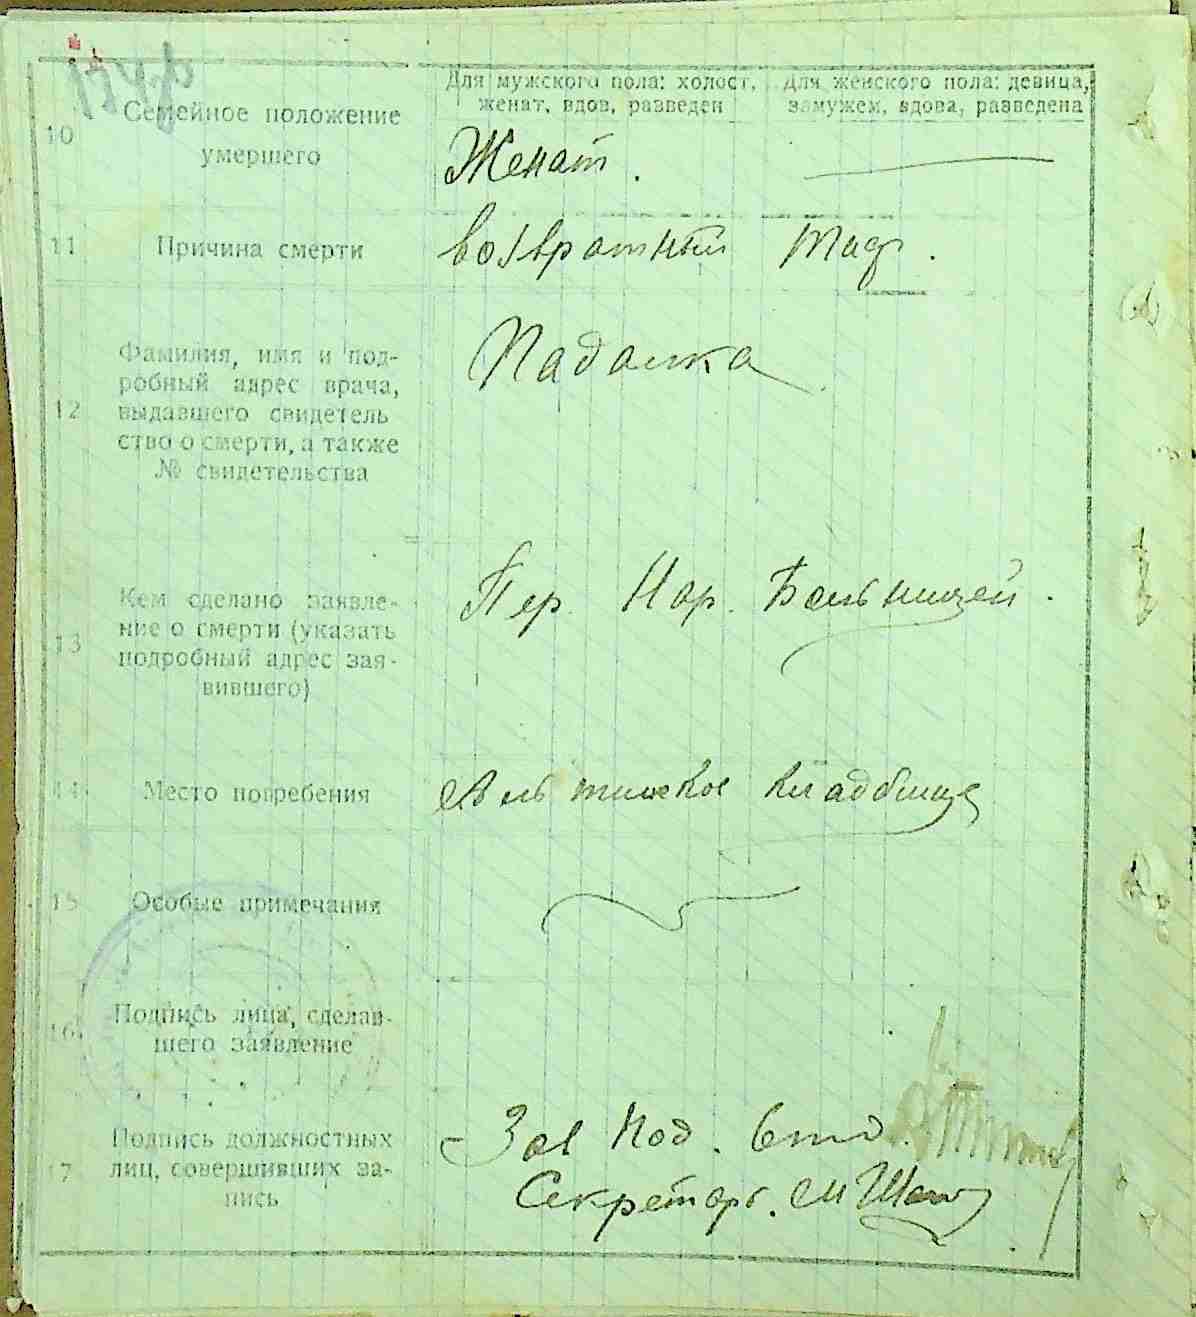 Для мужского пола: холост, женат, вдов, разведен
Для женского пола: девица, замужем, вдова, разведена
10
Семейное положение
умершего
Женат.
11
Причина смерти
Возвратный тиф.
12
Фамилия, имя и под-
робный адрес врача,
выдавшего свидетель
ство о смерти, а также
№ свидетельства
Падалка
13
Кем сделано заявле-
ние о смерти (указать
подробный адрес зая-
вившего)
Пер. Нар. Больницей.
14
Место погребения
кладбище
15
Особые примечания
16
Подпись лица, сделав-
шего заявление
17
Подпись должностных
лиц, совершивших за-
пись
Зав Под. Отд.
Секретарь.